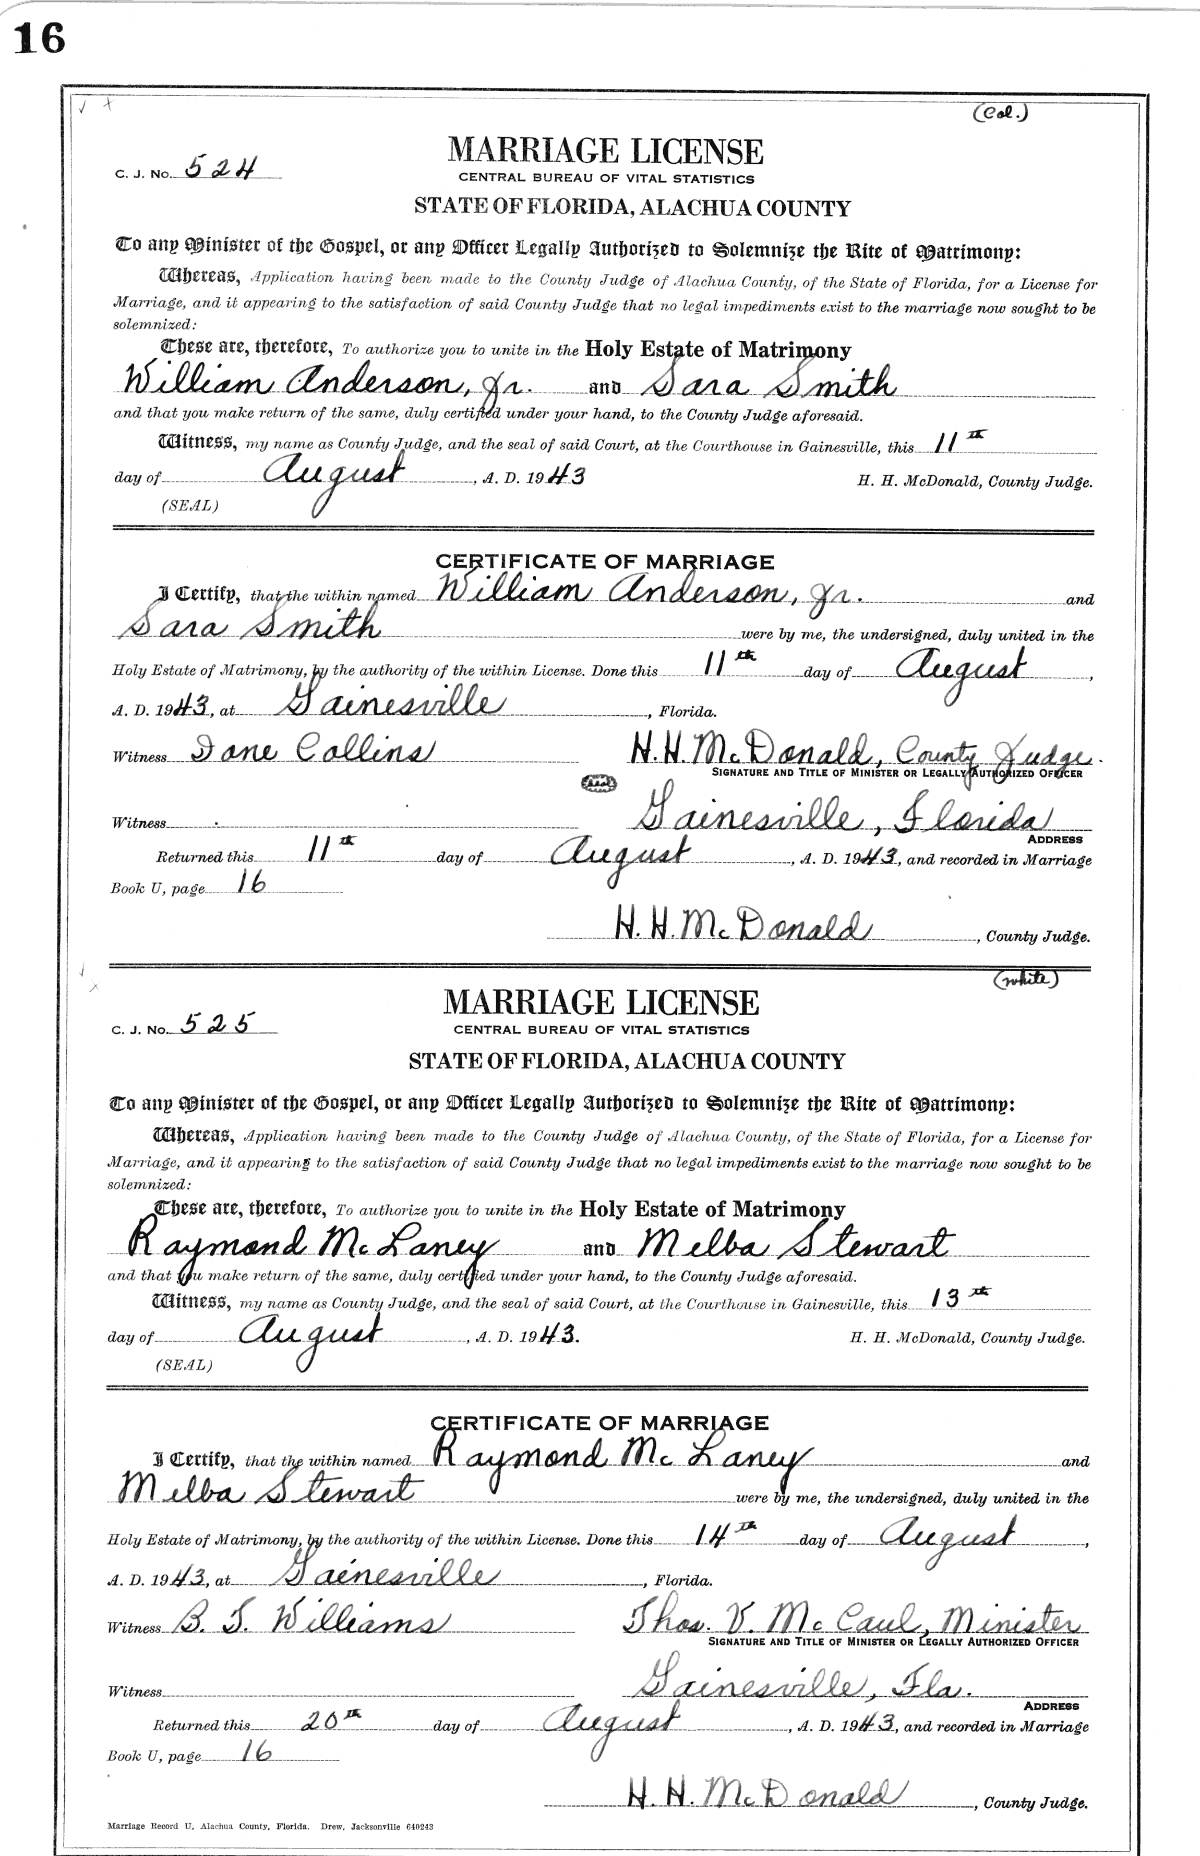 16
(Col.)
MARRIAGE LICENSE
C. J. No. 524
CENTRAL BUREAU OF VITAL STATISTICS
STATE OF FLORIDA, ALACHUA COUNTY
To any Minister of the Gospel, or any Officer Legally Authorized to Solemnize the Rite of Matrimony:
Whereas, Application having been made to the County Judge of Alachua County, of the State of Florida, for a License for
Marriage, and it appearing to the satisfaction of said County Judge that no legal impediments exist to the marriage now sought to be
solemnized:
These are, therefore, To authorize you to unite in the Holy Estate of Matrimony
William Anderson, Jr. and Sara Smith
and that you make return of the same, duly certified under your hand, to the County Judge aforesaid.
Witness, my name as County Judge, and the seal of said Court, at the Courthouse in Gainesville, this 11th
day of August, A. D. 1943 H. H. McDonald, County Judge.
(SEAL)
CERTIFICATE OF MARRIAGE
I Certify, that the within named William Anderson, Jr. and
Sara Smith were by me, the undersigned, duly united in the
Holy Estate of Matrimony, by the authority of the within License. Done this 11th day of August,
A. D. 1943, at Gainesville, Florida.
Witness Jane Collins H. H. McDonald, County Judge.
SIGNATURE AND TITLE OF MINISTER OR LEGALLY AUTHORIZED OFFICER
(Seal)
Witness Gainesville, Florida
ADDRESS
Returned this 11th day of August, A. D. 1943, and recorded in Marriage
Book U, page 16
H. H. McDonald, County Judge.
(white)
MARRIAGE LICENSE
C. J. No. 525
CENTRAL BUREAU OF VITAL STATISTICS
STATE OF FLORIDA, ALACHUA COUNTY
To any Minister of the Gospel, or any Officer Legally Authorized to Solemnize the Rite of Matrimony:
Whereas, Application having been made to the County Judge of Alachua County, of the State of Florida, for a License for
Marriage, and it appearing to the satisfaction of said County Judge that no legal impediments exist to the marriage now sought to be
solemnized:
These are, therefore, To authorize you to unite in the Holy Estate of Matrimony
Raymond McLaney and Melba Stewart
and that you make return of the same, duly certified under your hand, to the County Judge aforesaid.
Witness, my name as County Judge, and the seal of said Court, at the Courthouse in Gainesville, this 13th
day of August, A. D. 1943. H. H. McDonald, County Judge.
(SEAL)
CERTIFICATE OF MARRIAGE
I Certify, that the within named Raymond McLaney and
Melba Stewart were by me, the undersigned, duly united in the
Holy Estate of Matrimony, by the authority of the within License. Done this 14th day of August,
A. D. 1943, at Gainesville, Florida.
Witness B. T. Williams Thos. V. McCaul, Minister
SIGNATURE AND TITLE OF MINISTER OR LEGALLY AUTHORIZED OFFICER
Witness Gainesville, Fla.
ADDRESS
Returned this 20th day of August, A. D. 1943, and recorded in Marriage
Book U, page 16
H. H. McDonald, County Judge.
Marriage Record U, Alachua County, Florida. Drew, Jacksonville 640243